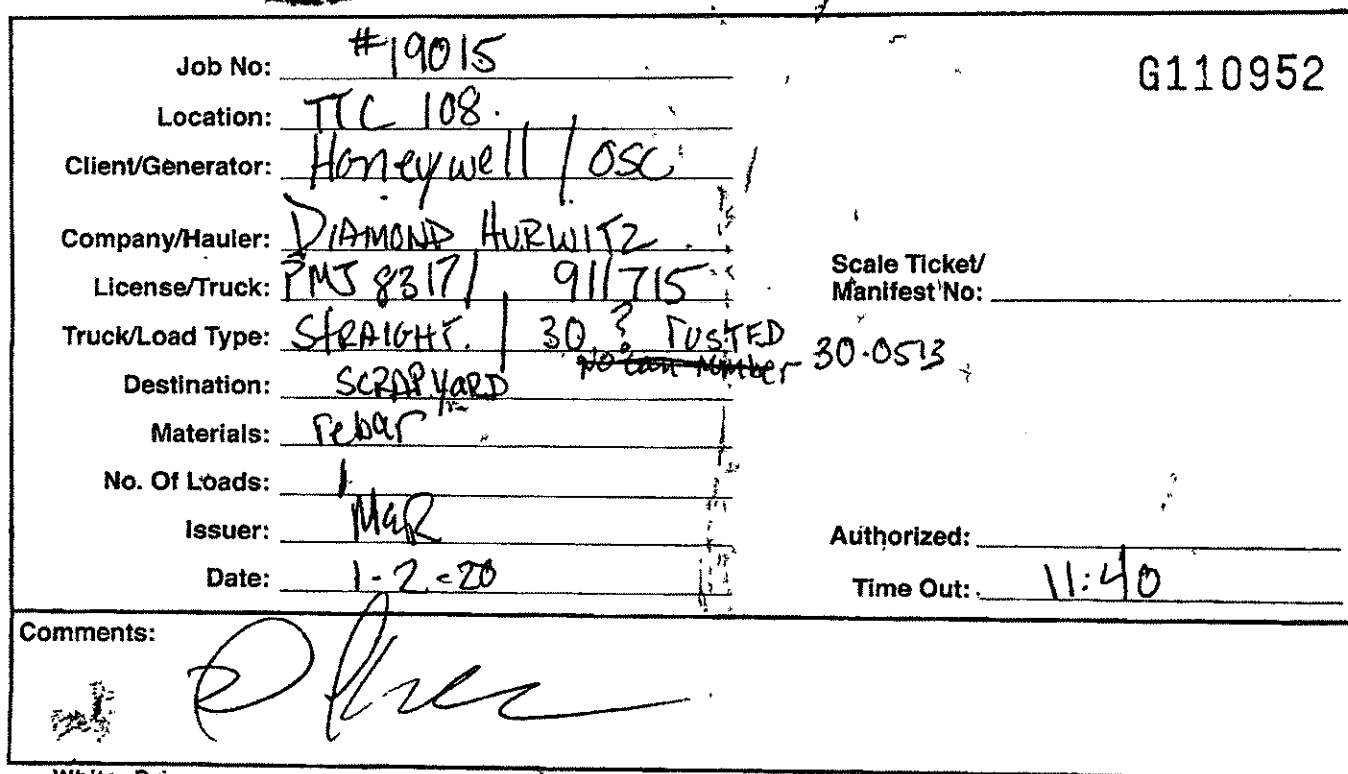 Job No: #19015
G110952
Location: TTC 108.
Client/Generator: Honeywell / OSC
Company/Hauler: DIAMOND HURWITZ.
License/Truck: PMJ 8317 / 911715
Scale Ticket/
Manifest No:
Truck/Load Type: STRAIGHT. / 30 ? rusTED
No can number 30-0513
Destination: SCRAP YaRD
Materials: rebar
No. Of Loads: 1
Issuer: MGR
Authorized:
Date: 1-2-20
Time Out: 11:40
Comments: